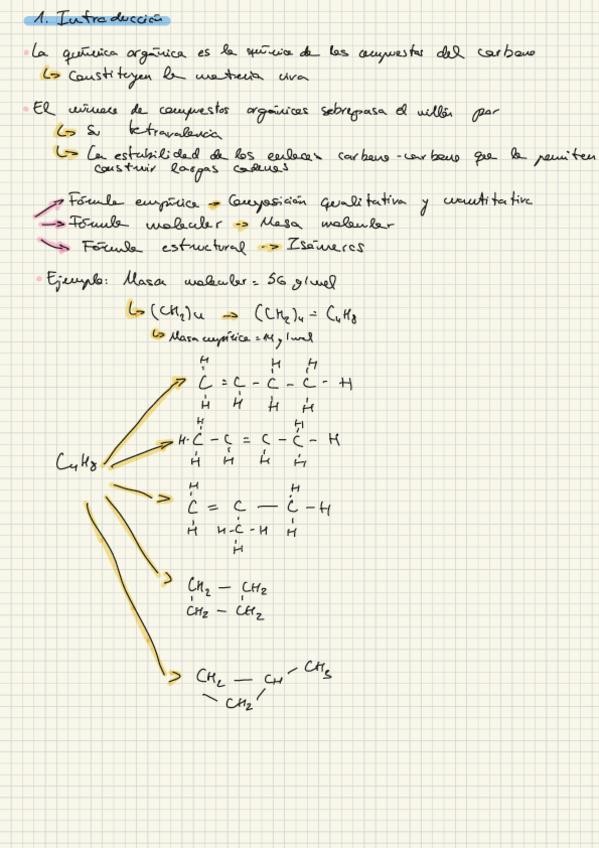 1. Introducción
La química orgánica es la química de los compuestos del carbono
Constituyen la materia viva
El número de compuestos orgánicos sobrepasa el millón por
Su tetravalencia
La estabilidad de los enlaces carbono-carbono que le permiten
construir largas cadenas
Fórmula empírica → Composición cualitativa y cuantitativa
Fórmula molecular → Masa molecular
Fórmula estructural → Isómeros
Ejemplo: Masa molecular = 56 g/mol
(CH2)n → (CH2)4 = C4H8
Masa empírica = 14 g/mol
H H H
C = C - C - C - H
H H H H
H H
H-C - C = C - C - H
H H H H
C4H8
H H
C = C — C - H
H H-C-H H
H
CH2 — CH2
CH2 — CH2
CH2 — CH — CH3
CH2